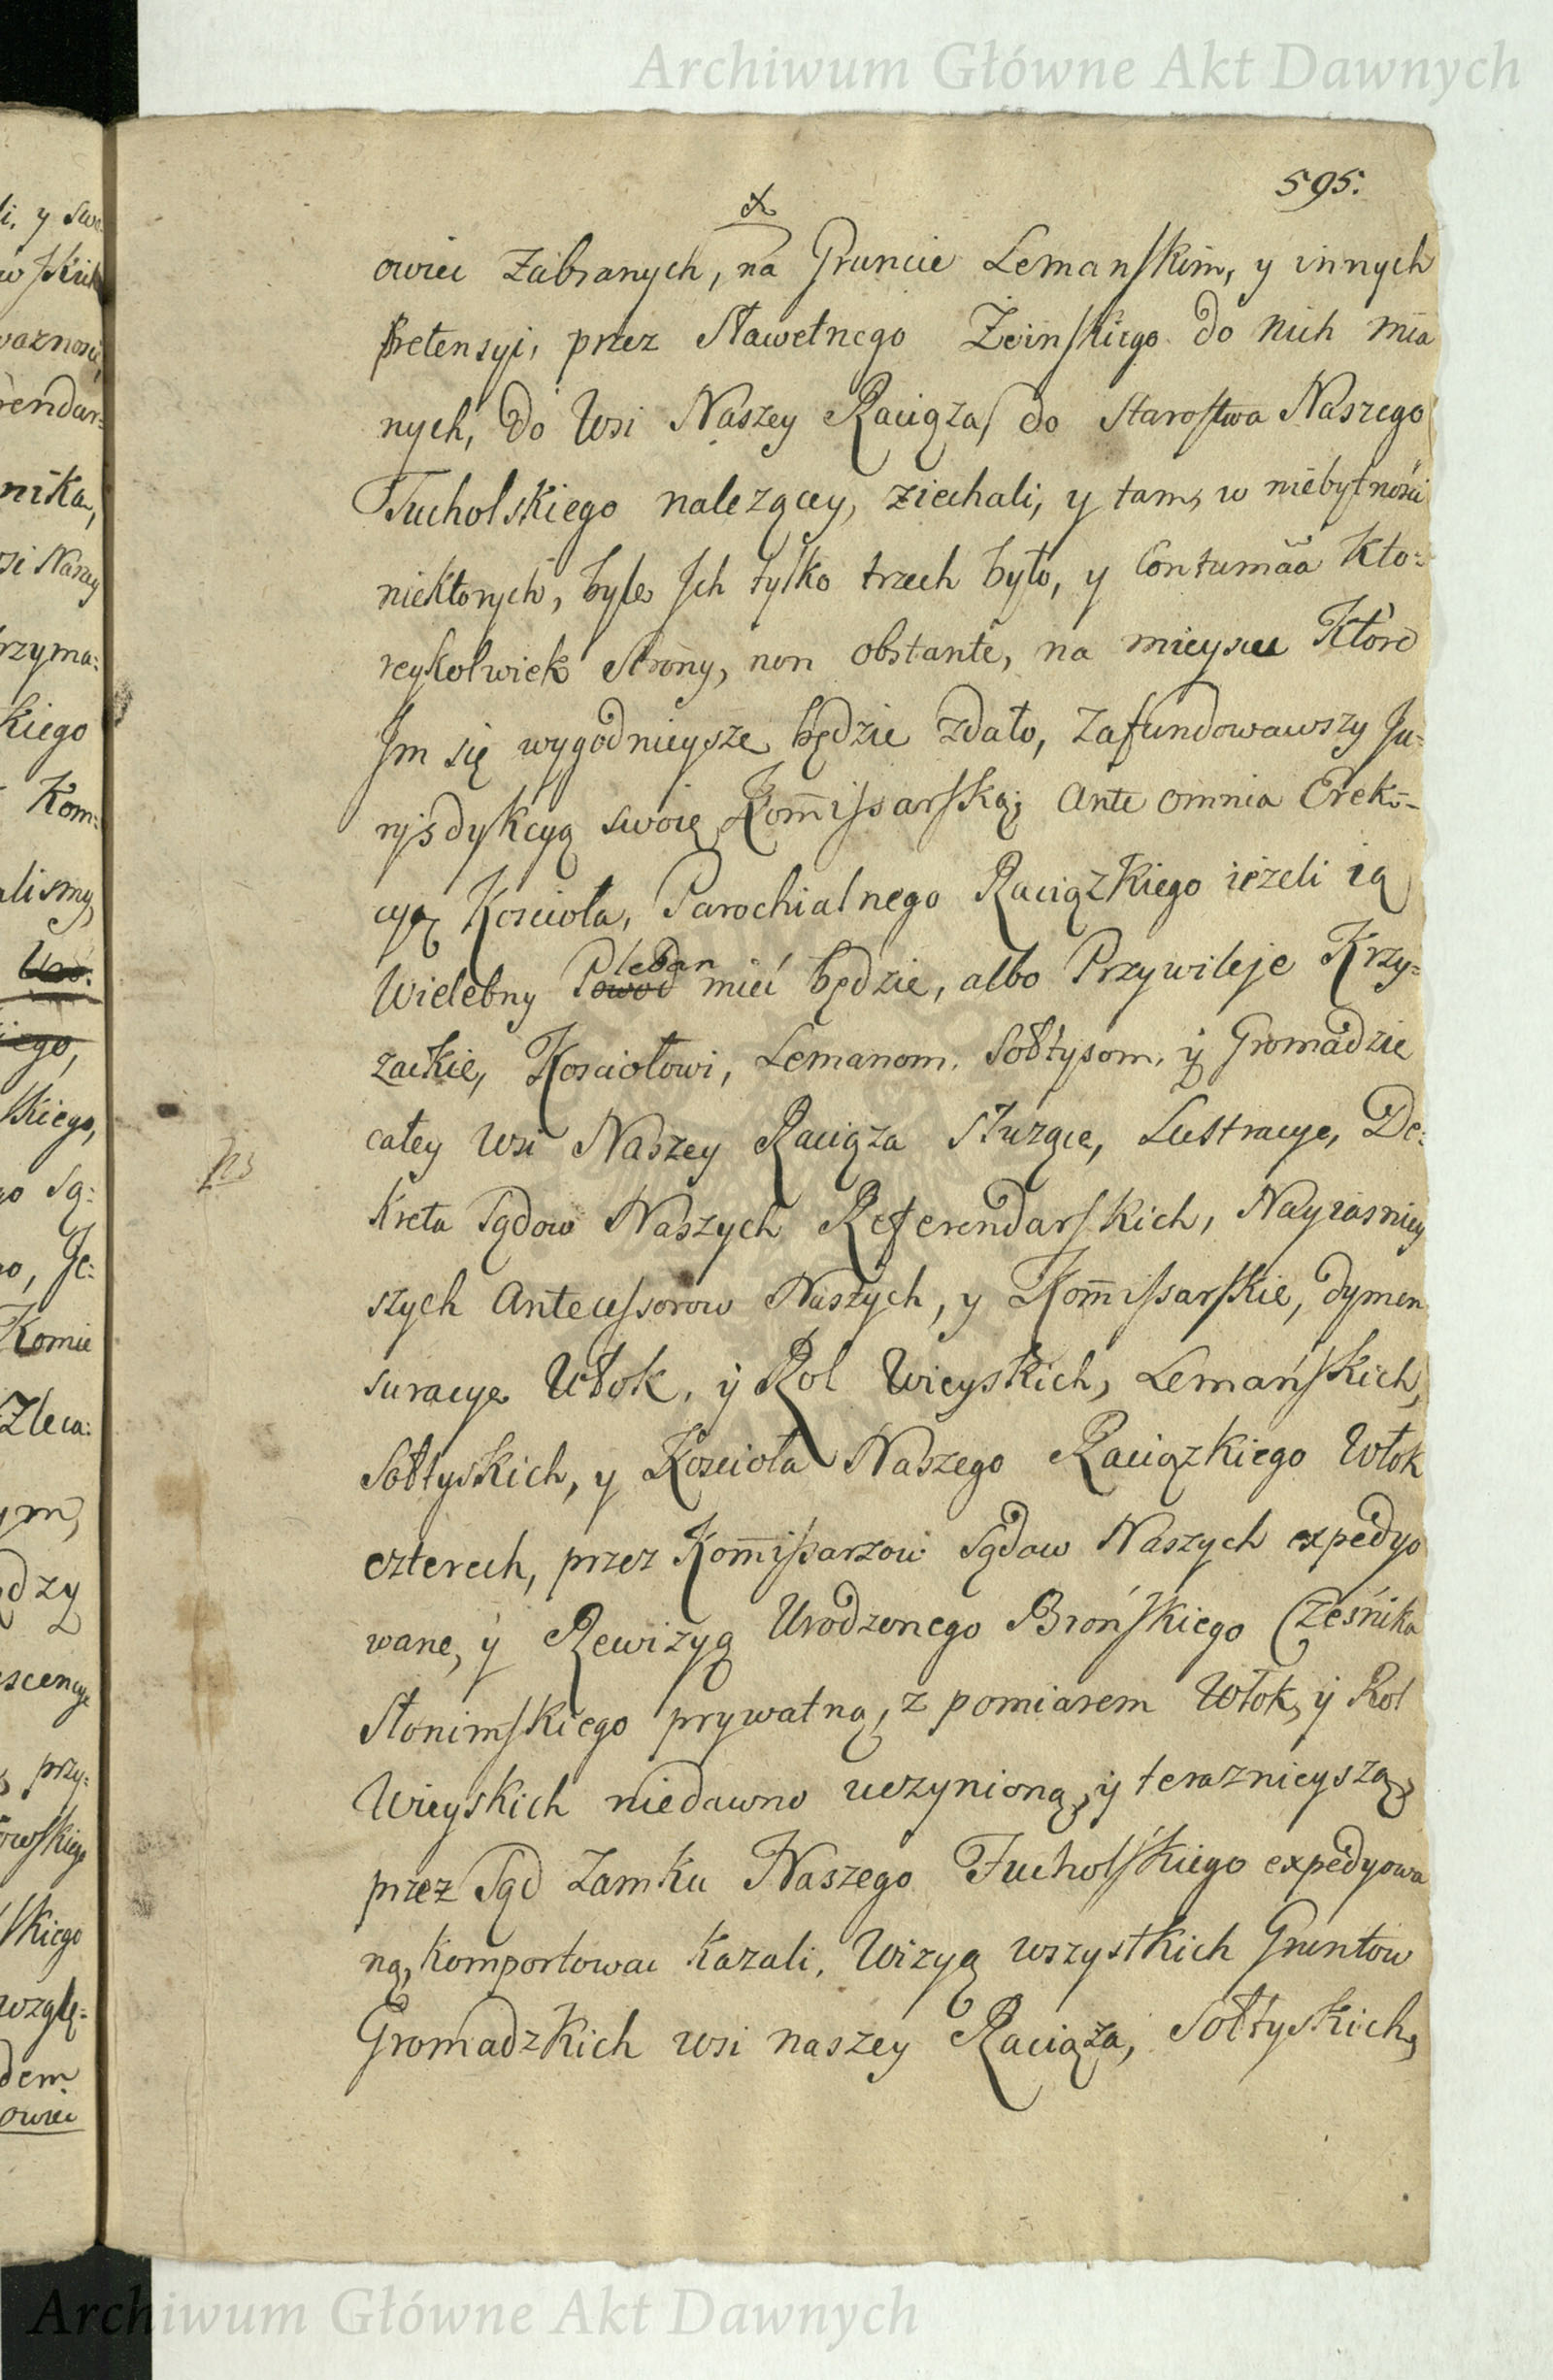 Archiwum Główne Akt Dawnych
595.
owiec zabranych, na Gruncie Lemanskim, y innych
Pretensyi, przez Sławetnego Żeinskiego do nich mia
nych, do Wsi Naszey Raciąza, do Starostwa Naszego
Tucholskiego nalezącey, ziechali, y tam, w niebytnosci
niektorych, byle Ich tylko trzech było, y Contumacia kto=
reykolwiek Strony, non obstante, na mieyscu Ktore
Im się wygodnieysze będzie zdało, Zafundowawszy Ju=
rysdykcyą swoię Kom̄issarską; Ante omnia Erek=
cyą Koscioła, Parochialnego Raciązkiego ieżeli ią
Wielebny Powod Pleban mieć będzie, albo Przywileje Krzy=
zackie, Kosciołowi, Lemanom, Sołtysom, ÿ Gromadzie
całey Wsi Naszey Raciąza służące, Lustracye, De=
kreta Sądow Naszych Referendarskich, Nayiasniey
szych Antecessorow Naszych, y Kom̄issarskie, dymen
suracye Włok, ÿ Rol Wieyskich, Lemańskich,
Sołtyskich, y Koscioła Naszego Raciązkiego Włok
czterech, przez Kom̄issarzow Sądow Naszych expedyo
wane, ÿ Rewizyą Urodzonego Brońskiego Cześnika
Słonimskiego prywatną, z pomiarem Włok, ÿ Rol
Wieyskich niedawno uczynioną, ÿ teraznieyszą,
przez Sąd Zamku Naszego Tucholskiego expedyowa
ną, komportowac kazali, Wizyą wszystkich Gruntow
Gromadzkich wsi naszey Raciąza, Sołtyskich,
Archiwum Główne Akt Dawnych